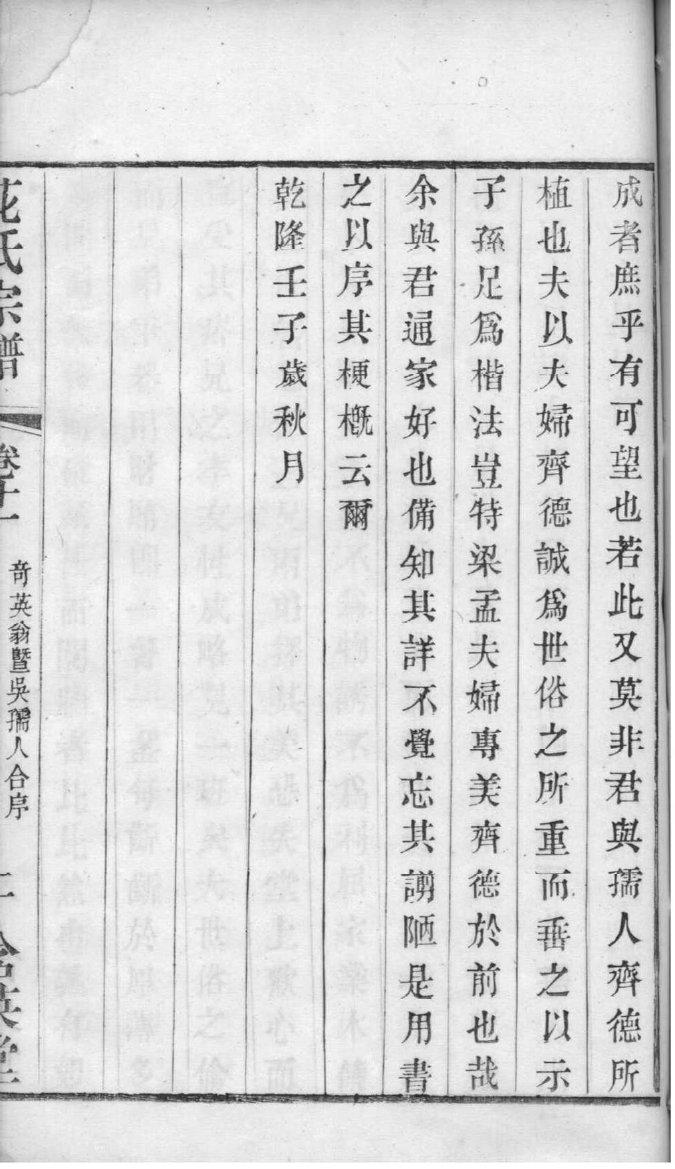 成者庶乎有可望也若此又莫非君與孺人齊德所
植也夫以夫婦齊德誠爲世俗之所重而垂之以示
子孫足爲楷法豈特梁孟夫婦專美齊德於前也哉
余與君通家好也備知其詳不覺忘其謭陋是用書
之以序其梗槪云爾
乾隆壬子歲秋月
花氏宗譜
卷十一
奇英翁暨吳孺人合序
二
含英堂